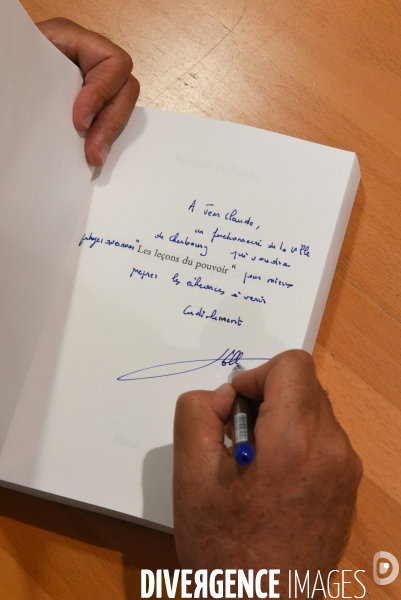 A Jean Claude,
un fonctionnaire de la Ville
de Cherbourg qui voudra
partager avec nous "Les leçons du pouvoir" pour mieux
préparer les échéances à venir
Cordialement
DIVERGENCE IMAGES